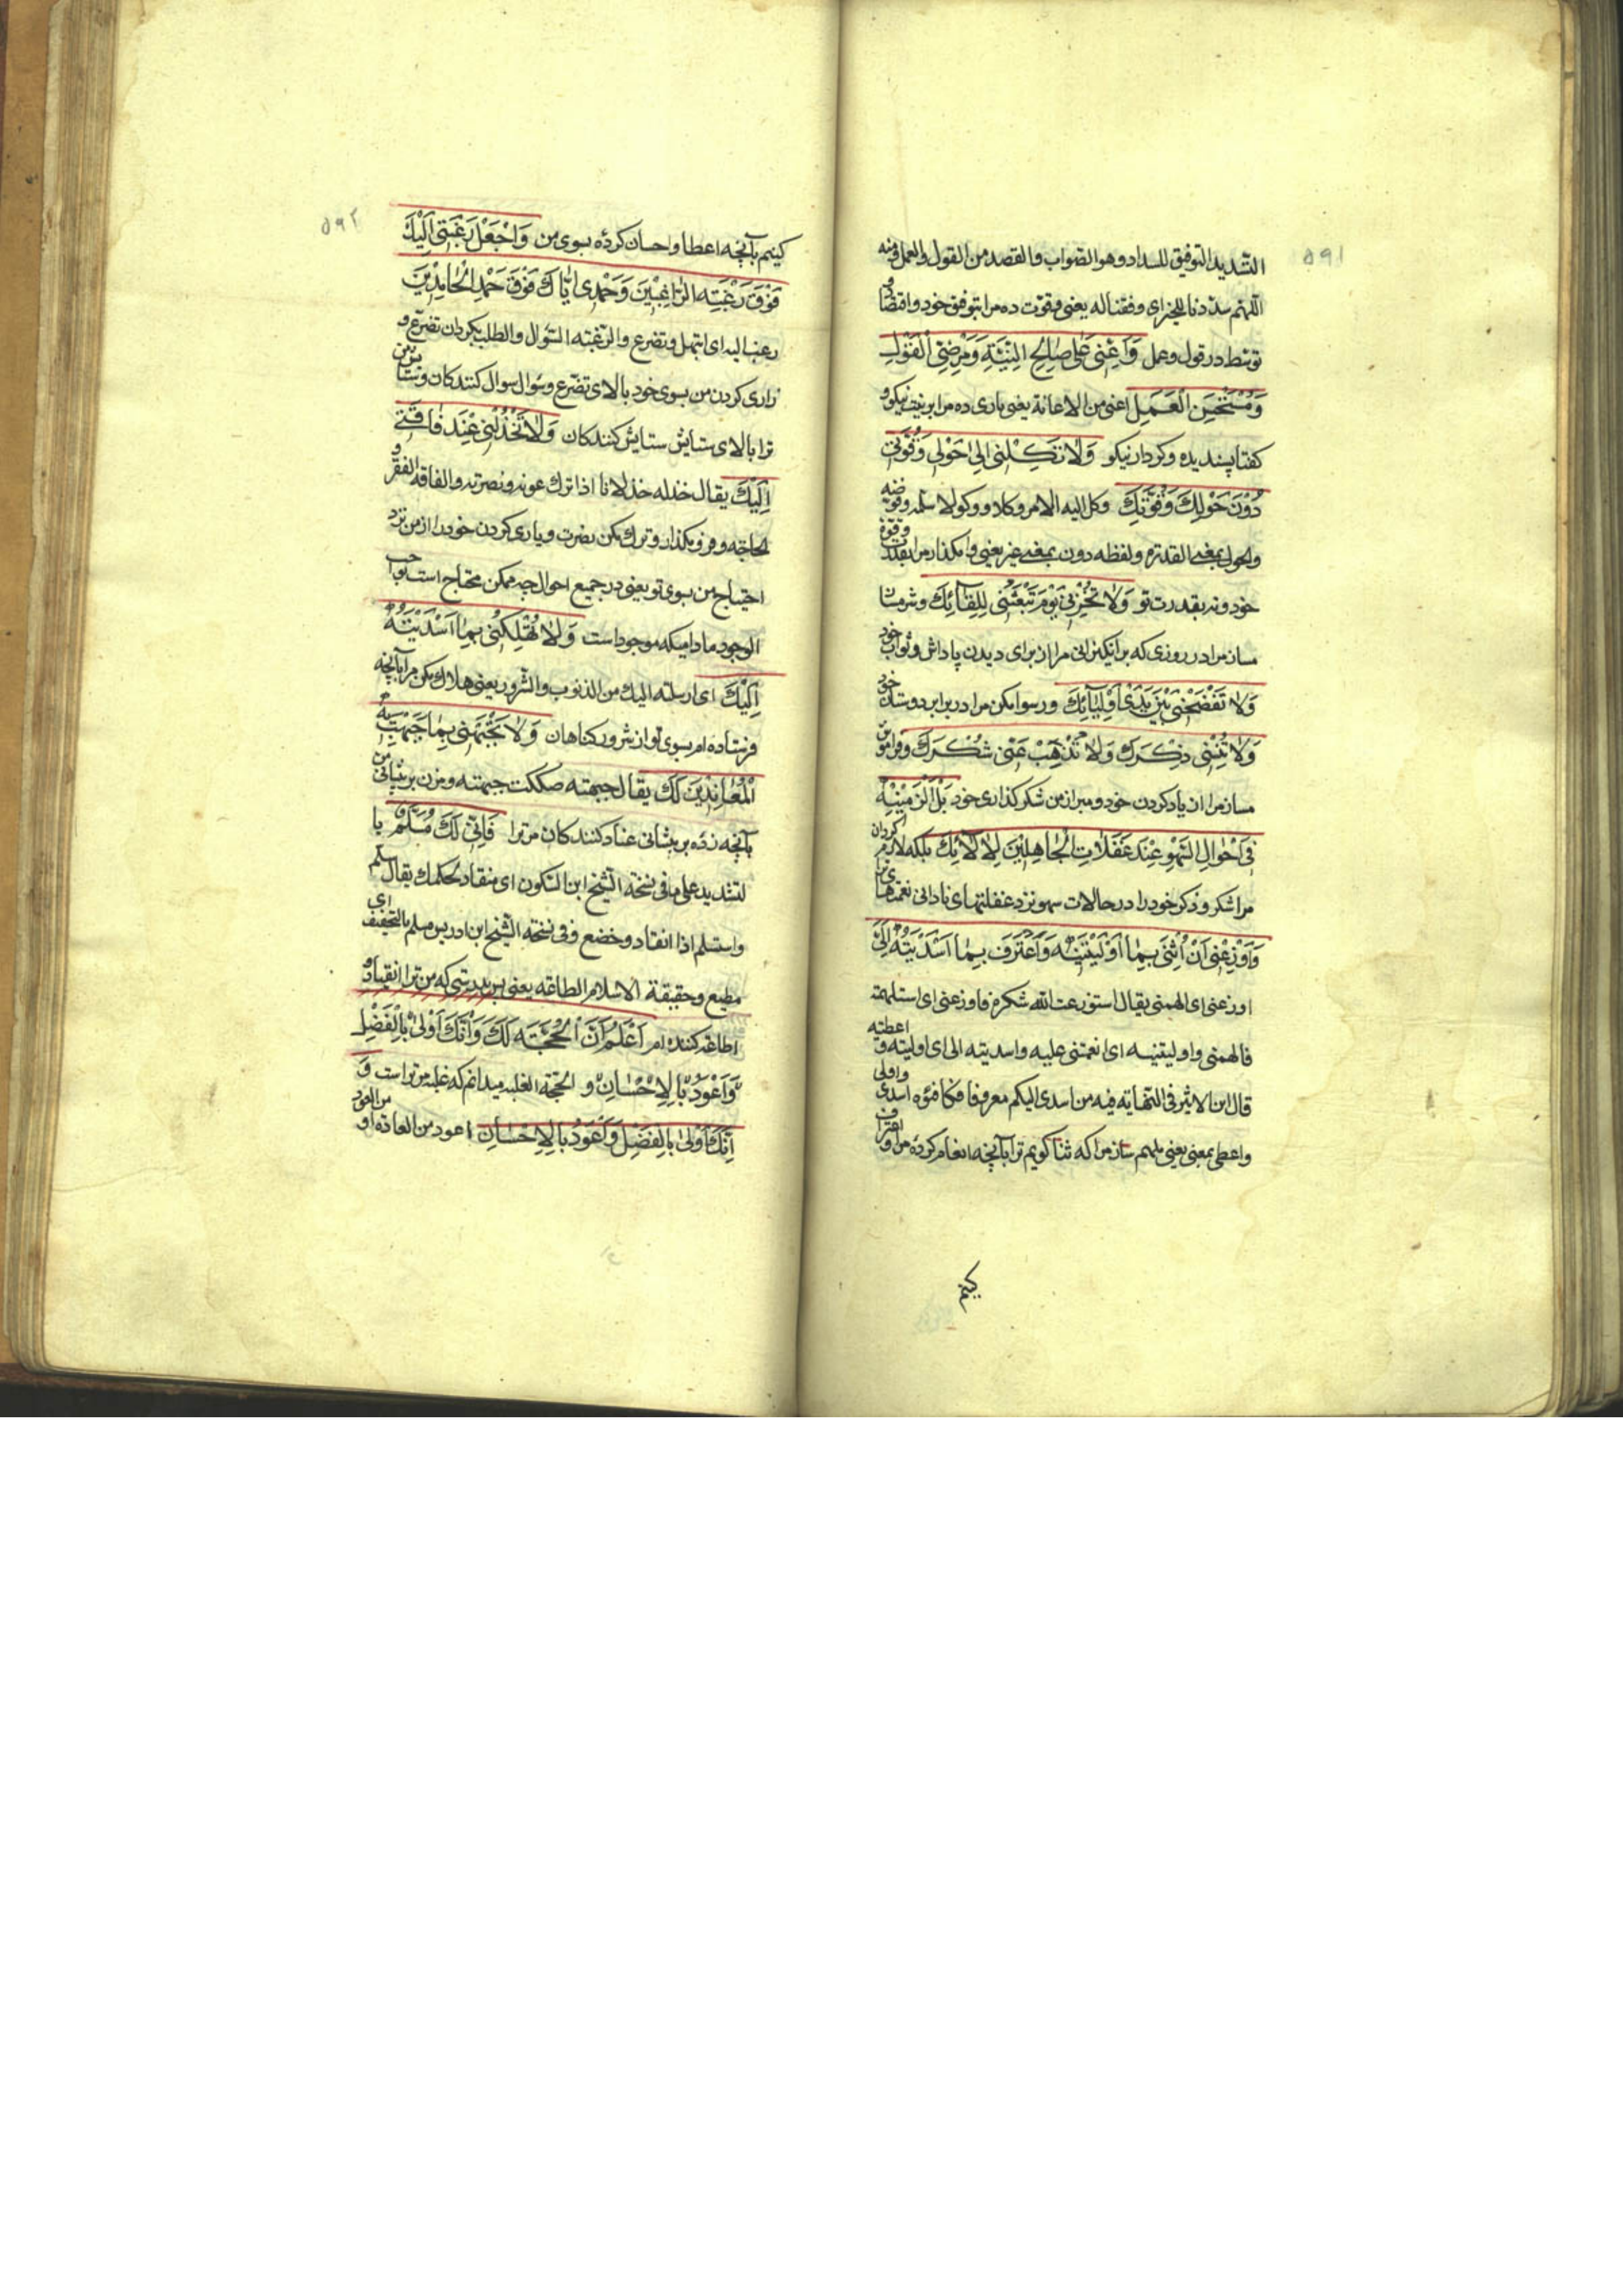 ۵۹۱
التسدید التوفیق للسداد و هو الصواب و القصد من القول و العمل و منه
اللهم سددنا للخیر ای وفقنا له یعنی و قوت ده مرا بتوفیق خود و اقتصاد و
توسط در قول و عمل وَاَعِنّی عَلیٰ صٰالِحِ النِّیَّةِ وَمَرْضِیِّ الْقَوْلِ
وَمُسْتَحْسَنِ الْعَمَلِ اعنی من الاعانة یعنی یاری ده مرا بر نیت نیکو و
کفتار پسندیده و کردار نیکو وَلاٰ تَکِلْنی اِلیٰ حَوْلی وَقُوَّتی
دُوْنَ حَوْلِكَ وَقُوَّتِكَ وکل الیه الامر وکلا و وکولا سلمه و فوضه
والحول بمعنی القدرة و لفظه دون بمعنی غیر یعنی وا مکذار مرا بقدرت و قوة
خود و نه بقدرت تو وَلاٰ تُخْزِنی یَوْمَ تَبْعَثُنی لِلِقٰآئِكَ و شرمسار
مساز مرا در روزی که برانکیزانی مرا از برای دیدن پاداش و ثواب خود
وَلاٰ تَفْضَحْنی بَیْنَ یَدَیْ اَوْلِیٰآئِكَ و رسوا مکن مرا در برابر دوستان خود
وَلاٰ تُنْسِنی ذِکْرَكَ وَلاٰ تُذْهِبْ عَنّی شُکْرَكَ و فراموش
مساز مرا از یاد کردن خود و مبر از من شکر کذاری خود بَلْ اَلْزِمْنیهِ
فی اَحْوٰالِ السَّهْوِ عِنْدَ غَفَلاٰتِ الْجٰاهِلینَ لِاٰلآئِكَ بلکه لازم کردان
مرا شکر و ذکر خود را در حالات سهو نزد غفلتهای نادانی نعمتهای تو
وَاَوْزِعْنی اَنْ اُثْنِیَ بِمٰا اَوْلَیْتَنیهِ وَاَعْتَرِفَ بِمٰا اَسْدَیْتَهُ اِلَیَّ
اوزعنی ای الهمنی یقال استوزعت الله شکره فاوزعنی ای استلهمته
فالهمنی و اولیتنیه ای انعمتنی علیه و اسدیته الی ای اولیته و اعطیته
قال ابن الاثیر فی النهایة فیه من اسدی الیکم معروفا فکافئوه اسدی و اولی
و اعطی بمعنی یعنی ملهم ساز مرا که ثنا کویم ترا بآنچه انعام کرده من و اعتراف
کینم
۵۹۲
کینم بآنچه اعطا و احسان کردهٔ بسوی من وَاجْعَلْ رَغْبَتی اِلَیْكَ
فَوْقَ رَغْبَتِه الرّٰاغِبینَ وَحَمْدی اِیّٰاكَ فَوْقَ حَمْدِ الْحٰامِدینَ
رغب الیه ای ابتهل و تضرع و الرغبته السؤال و الطلب بکردان تضرع و
زاری کردن من بسوی خود بالای تضرع و سؤال سؤال کنندکان و ستایش من
ترا بالای ستایش ستایش کنندکان وَلاٰ تَخْذُلْنی عِنْدَ فٰاقَتی
اِلَیْكَ یقال خذله خذلانا اذا ترك عونه و نصرته و الفاقة الفقر و
الحاجة و فرو مکذار و ترك مکن نصرت و یاری کردن خود را از من نزد
احتیاج من بسوی تو یعنی در جمیع احوال چه ممکن محتاج است بواجب
الوجود مادامیکه موجود است وَلاٰ تُهْلِکْنی بِمٰا اَسْدَیْتُهُ
اِلَیْكَ ای ارسلته الیك من الذنوب و الشرور یعنی هلاك مکن مرا بآنچه
فرستاده ام بسوی تو از شرور کناهان وَلاٰ تَجْبَهْنی بِمٰا جَبَهْتَ بِهِ
الْمُعٰانِدینَ لَكَ یقال جبهته صککت جبهته و مزن بر پیشانی من
بآنچه زدهٔ بر پیشانی عناد کنندکان مر ترا فَاِنّی لَكَ مُسَلِّمٌ با
لتشدید علی ما فی نسخة الشیخ ابن السکون ای منقاد لحکمك یقال سلم
و استسلم اذا انقاد و خضع و فی نسخة الشیخ ابن ادریس مسلم بالتخفیف ای
مطیع و حقیقة الاسلام الطاعة یعنی پس بدرستی که من ترا انقیاد و
اطاعة کننده ام اَعْلَمُ اَنَّ الْحُجَّتَه لَكَ وَاَنَّكَ اَوْلیٰ بِالْفَضْلِ
وَاَعْوَدُ بِالْاِحْسٰانِ و الحجة الغلبه میدانم که غلبه مر ترا است وَ
اِنَّكَ اَوْلیٰ بِالْفَضْلِ وَاَعْوَدُ بِالْاِحْسٰانِ اعود من العادة او من العود